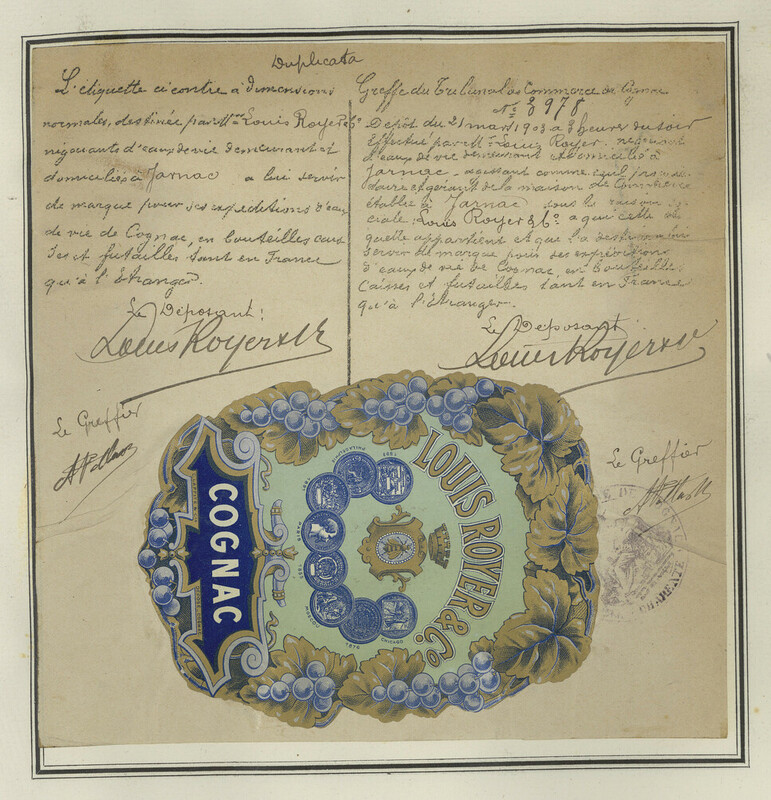 Duplicata
L'étiquette ci contre à dimensions
normales, destinée par Mrs Louis Royer & Co
négociants d'eaux de vie demeurant et
domiciliés à Jarnac a lui servir
de marque pour ses expéditions d'eaux
de vie de Cognac, en bouteilles cais
ses et futailles tant en France
qu'à l'Etranger.
Le Déposant:
Louis Royer & Co
Le Greffier
Greffe du Tribunal de Commerce de Cognac
No 8978
Dépôt du 21 mars 1903 à 3 heures du soir
Effectué par M Louis Royer, négociant
d'eaux de vie demeurant et domicilié à
Jarnac, agissant comme
et gérant de la maison de Commerce
établie à Jarnac sous la raison so
ciale: Louis Royer & Co. a qui cette éti
quette appartient et que l'a
servir de marque pour ses expéditions
d'eaux de vie de Cognac, en bouteilles
Caisses et futailles tant en France
qu'à l'Etranger.
Le Déposant
Louis Royer & Co
Le Greffier
LOUIS ROYER & Co
COGNAC
PARIS
CHICAGO